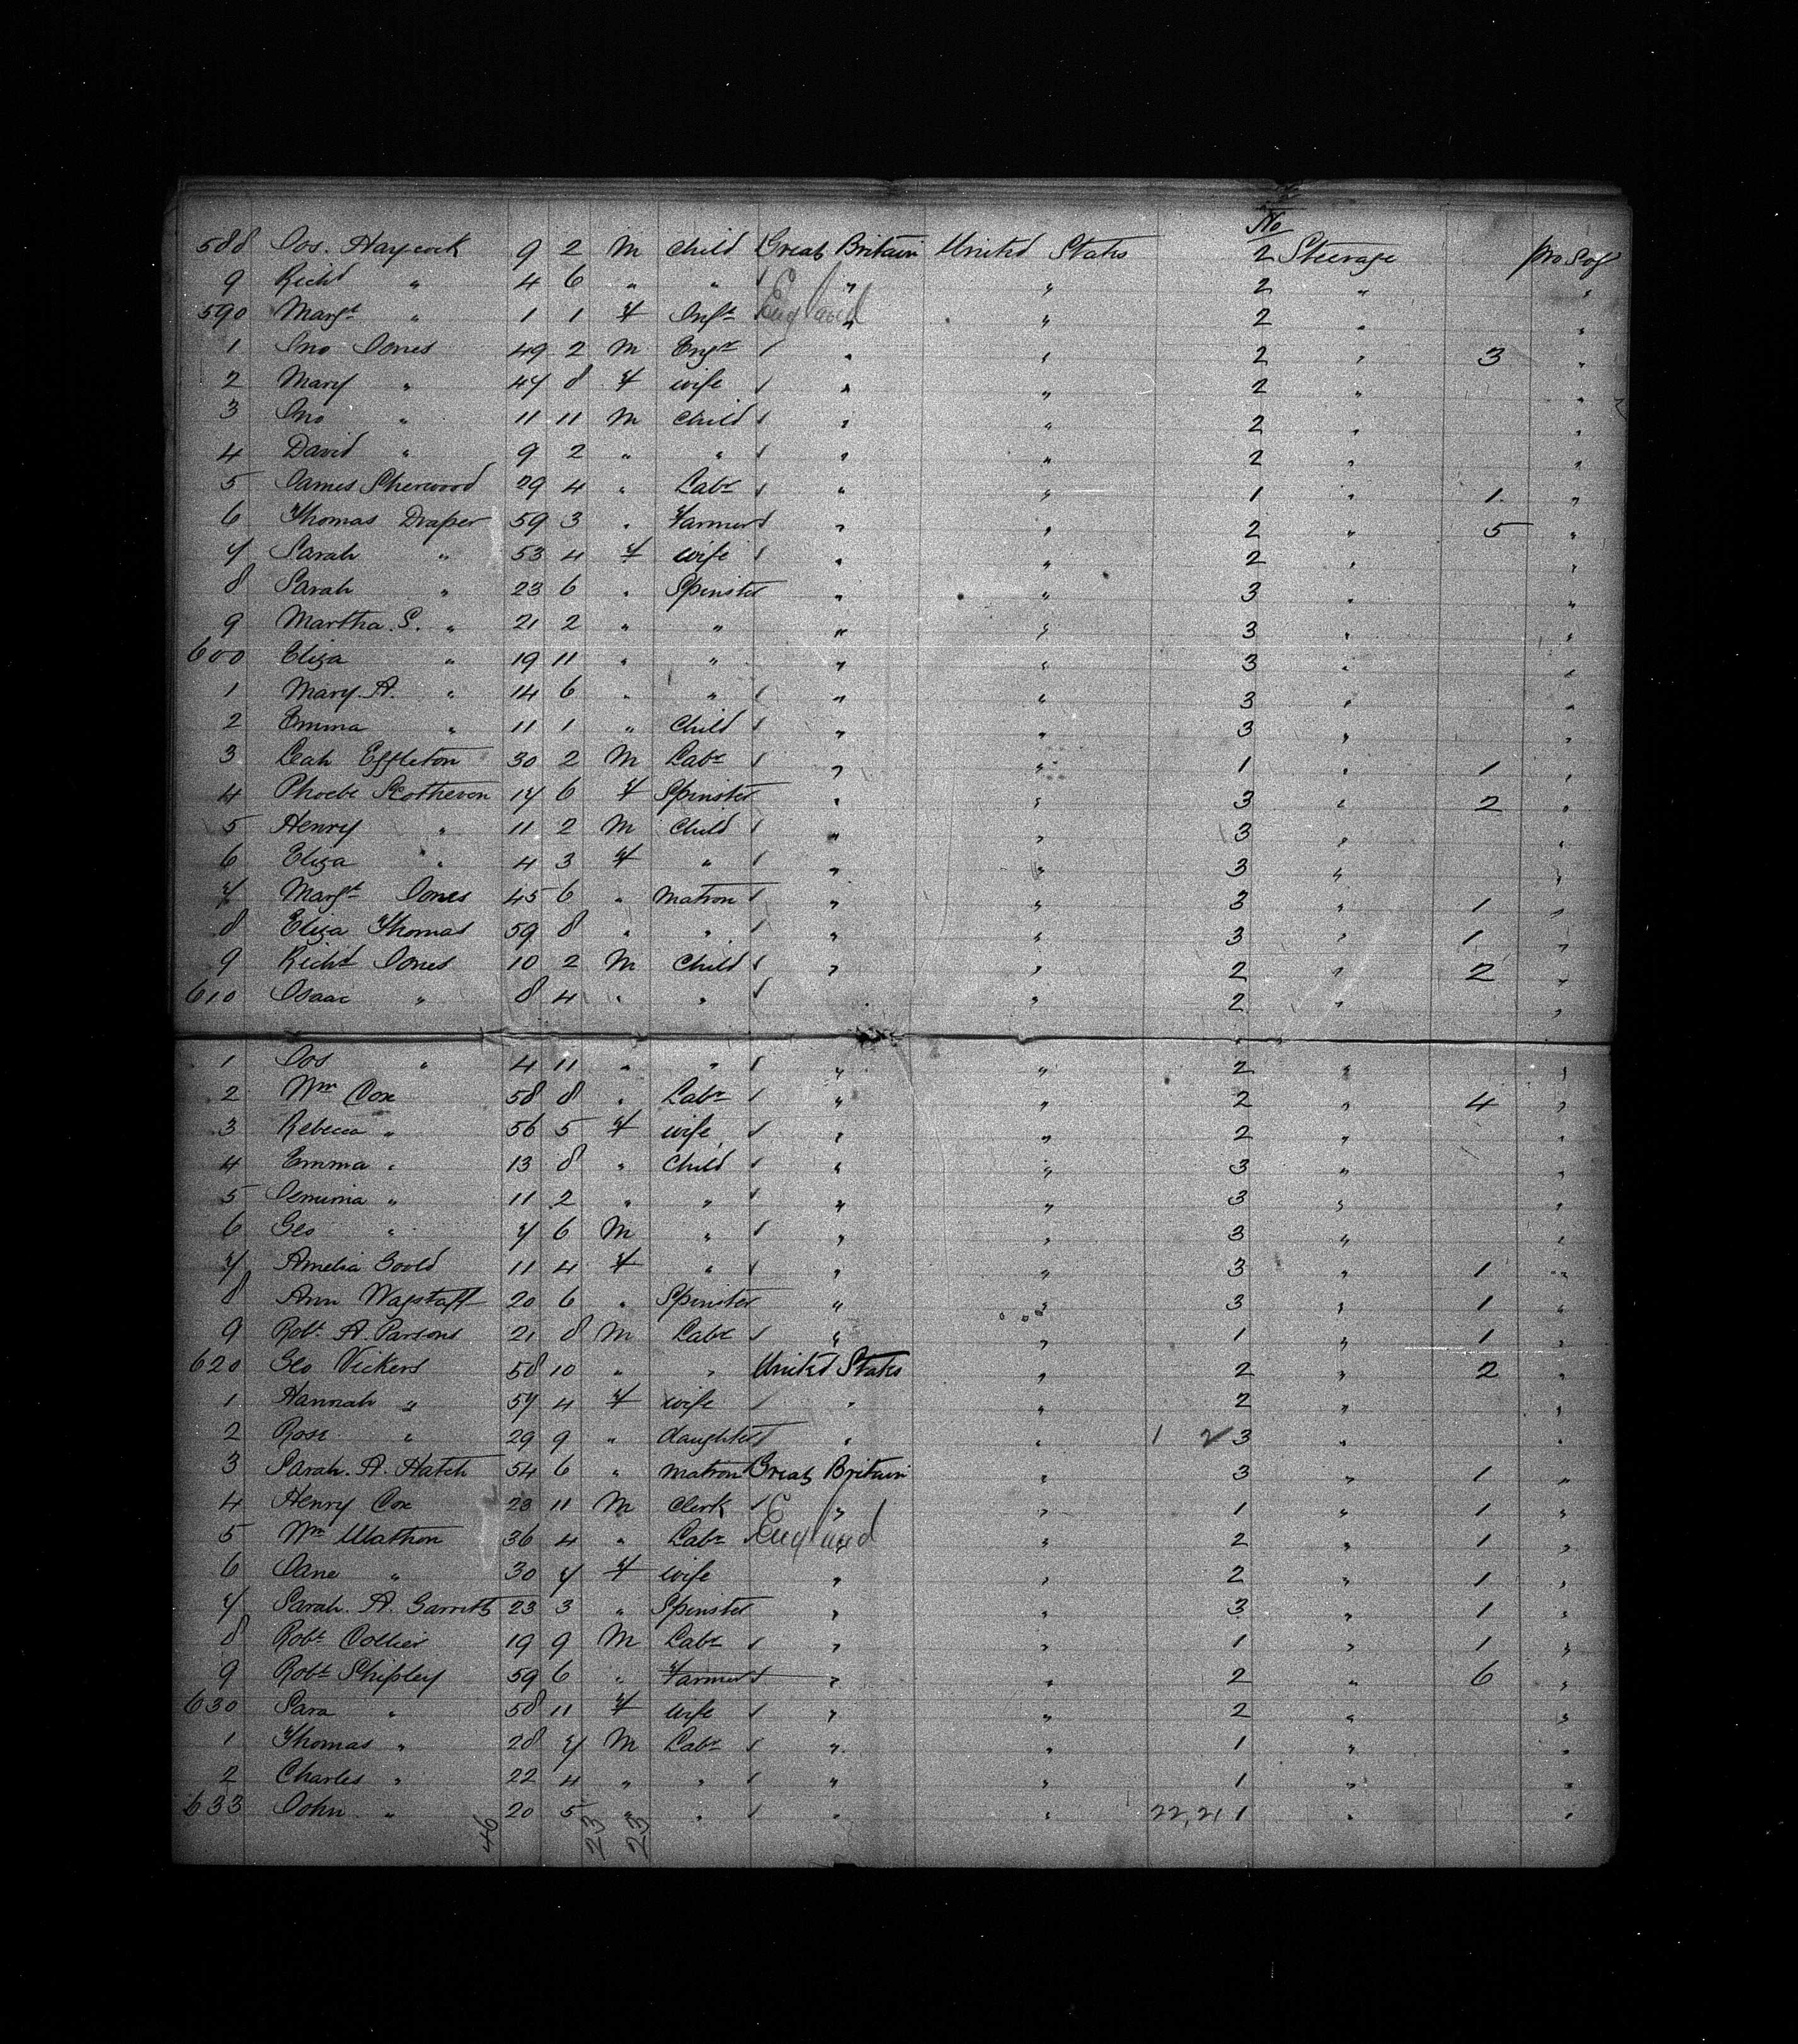 No
588 Jos. Haycock 9 2 M Child Great Britain United States 2 Steerage Pro Soj
9 Richd " 4 6 " " " " 2 " "
590 Margt " 1 1 F Inft England " " 2 " "
1 Jno Jones 49 2 M Engr " " 2 " 3 "
2 Mary " 47 8 F wife " " 2 " "
3 Jno " 11 11 M Child " " 2 " "
4 David " 9 2 " " " " 2 " "
5 James Sherwood 29 4 " Labr " " 1 " 1 "
6 Thomas Draper 59 3 " Farmer " " 2 " 5 "
7 Sarah " 53 4 F wife " " 2 " "
8 Sarah " 23 6 " Spinster " " 3 " "
9 Martha S. " 21 2 " " " " 3 " "
600 Eliza " 19 11 " " " " 3 " "
1 Mary A. " 14 6 " " " " 3 " "
2 Emma " 11 1 " Child " " 3 " "
3 Leah Effleton 30 2 M Labr " " 1 " 1 "
4 Phoebe 17 6 F Spinster " " 3 " 2 "
5 Henry " 11 2 M Child " " 3 " "
6 Eliza " 4 3 F " " " 3 " "
7 Margt Jones 45 6 " Matron " " 3 " 1 "
8 Eliza Thomas 59 8 " " " " 3 " 1 "
9 Richd Jones 10 2 M Child " " 2 " 2 "
610 Isaac " 8 4 " " " 2 " "
1 Jos " 4 11 " " " " 2 " "
2 Wm Cox 58 8 " Labr " " 2 " 4 "
3 Rebecca " 56 5 F wife " " 2 " "
4 Emma " 13 8 " Child " " 3 " "
5 Jemima " 11 2 " " " " 3 " "
6 Geo " 7 6 M " " " 3 " "
7 Amelia Goold 11 4 F " " " 3 " 1 "
8 Ann Wagstaff 20 6 " Spinster " " 3 " 1 "
9 Robt A. Parsons 21 8 M Labr " " 1 " 1 "
620 Geo Vickers 58 10 " " United States " 2 " 2 "
1 Hannah " 57 4 F wife " " 2 " "
2 Rose " 29 9 " daughter " " 1 2 3 " "
3 Sarah. A. Hatch 54 6 " Matron Great Britain " 3 " 1 "
4 Henry Cox 23 11 M Clerk " " 1 " 1 "
5 Wm Mathon 36 4 " Labr England " " 2 " 1 "
6 Jane " 30 7 F wife " " 2 " 1 "
7 Sarah. A. Garrett 23 3 " Spinster " " 3 " 1 "
8 Robt Collier 19 9 M Labr " " 1 " 1 "
9 Robt Shipley 59 6 " Farmer " " 2 " 6 "
630 Sara " 58 11 F wife " " 2 " "
1 Thomas " 28 7 M Labr " " 1 " "
2 Charles " 22 4 " " " " 1 " "
633 John " 20 5 " " " " 22, 21 1 " "
46 23 23